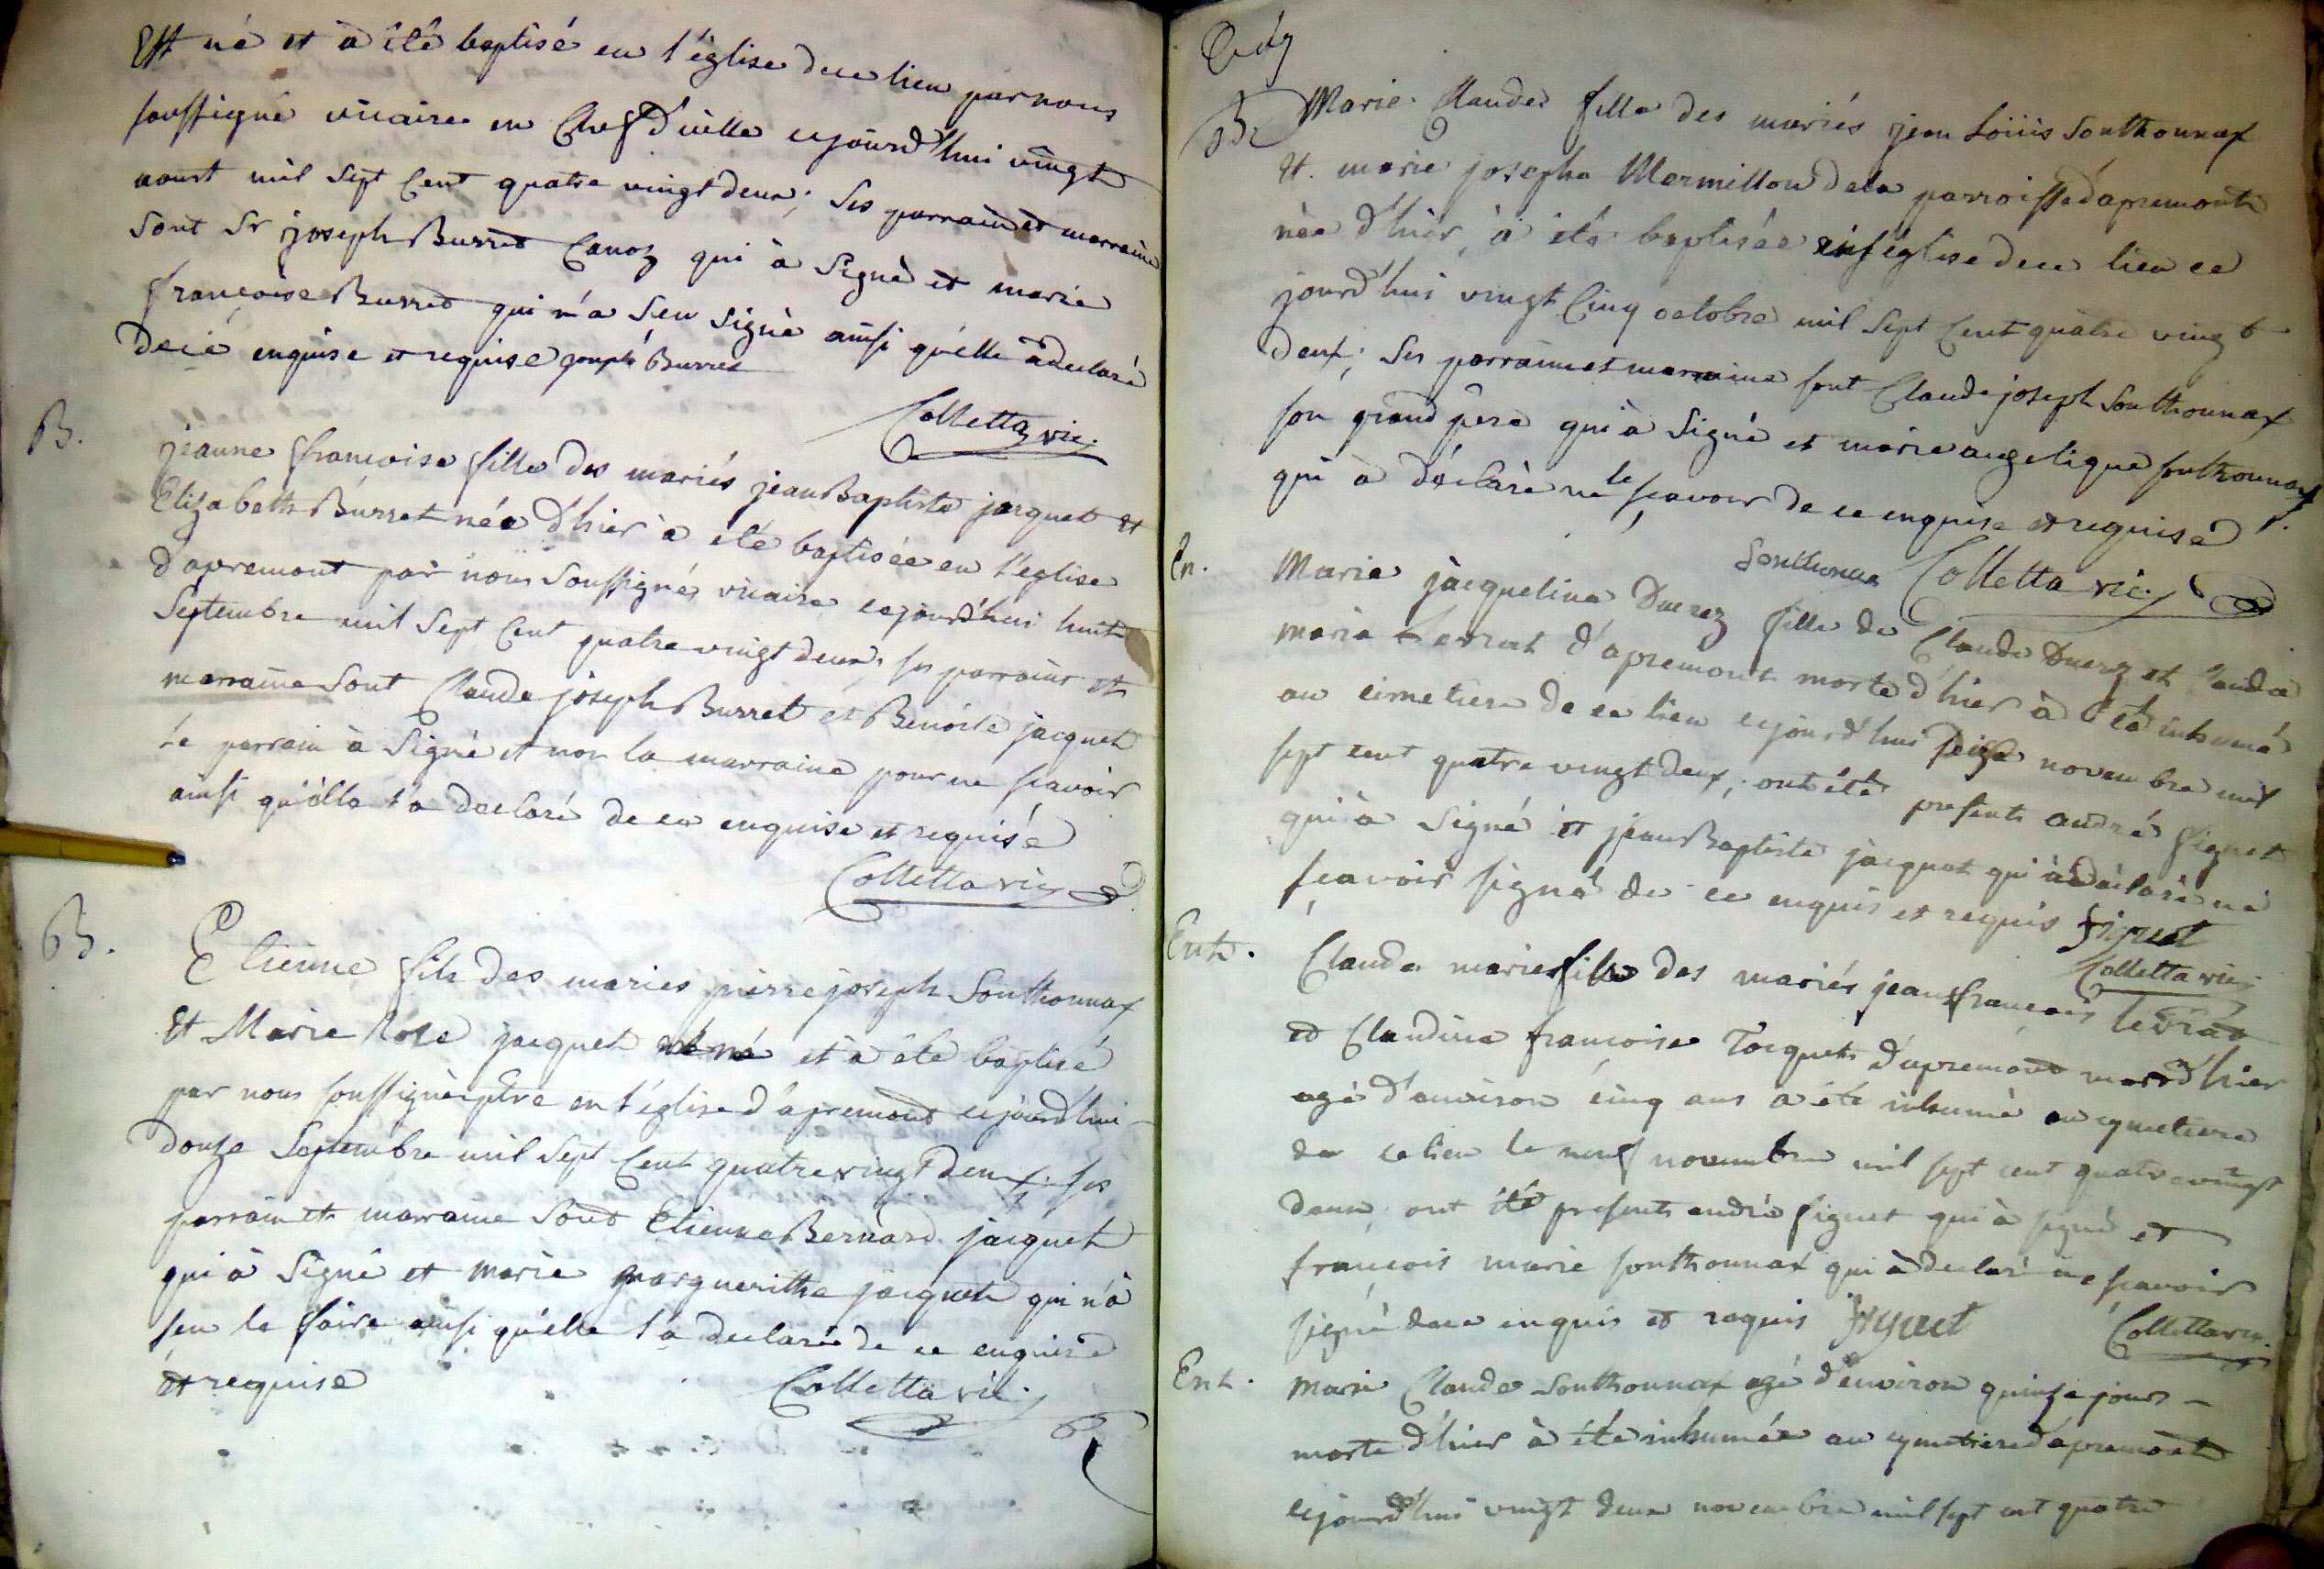 Est né et à été baptisé en l'église de ce lieu par nous
soussigné vicaire en Chef d'icelle cejourd'hui vingt
aoust mil sept Cent quatre vingt deux; ses parrain et marraine
sont Sr joseph Burret Canoz qui à Signé et marie
françoise Burret qui n'a Seu signè ainsi qu'elle à declaré
de ce enquise et requise joseph Burret
Colletta vic.
B.
jeanne françoise fille des mariés jean Baptiste jacquet et
Elizabeth Burret née d'hier à eté baptisée en l'eglise
d'apremont par nous Soussigné vicaire cejourd'hui huit
Septembre mil Sept Cent quatre vingt deux; ses parrain et
marraine sont Claude joseph Burret et Benoite jacquet
Le parrain à Signé et non la marraine pour ne scavoir
ainsi qu'elle l'a declaré de ce enquise et requise
Colletta vic
B.
Etienne fils des mariés pierre joseph Southonnax
Et Marie Rose jacquet est né et à été baptisé
par nous soussigné ptre en l'église d'apremont cejourd'hui
douze Septembre mil Sept Cent quatre vingt deux; ses
parrain et marraine sont Etienne Bernard jacquet
qui à Signé et marie margueritte jacquet qui n'à
seu le faire ainsi qu'elle l'a declaré de ce enquise
et requise
Colletta vic.
B
Marie Claude fille des mariés jean Loüis Southonnax
Et marie josephe Mermillon de la parroisse d'apremont
née d'hier, à été baptisée en l'église de ce lieu ce
jourd'hui vingt Cinq octobre mil Sept Cent quatre vingt
deux; Ses parrain et marraine sont Claude joseph Southonnax
son grand père qui à Signé et marie angelique southonnax
qui à déclaré ne le scavoir de ce enquise et requise
Southonnax Colletta vic.
En.
Marie jacqueline Duerez fille de Claude Duerez et Claudea
maria Levrat d'apremont morte d'hier à été inhumé
au cimetiere de ce lieu cejourd'hui seize novembre mil
sept cent quatre vingt deux; ont été presents andré figuet
qui à Signé et jean Baptiste jacquet qui à déclaré ne
scavoir signé de ce enquis et requis figuet
Colletta vic.
Ent.
Claude marie fille des mariés jean francois levrat
et Claudine françoise Jacquet d'apremont mort d'hier
agé d'environ cinq ans a été inhumé au cymetiere
de ce lieu le neuf novembre mil sept cent quatre vingt
deux; ont été presents andré figuet qui à signé et
françois marie southonnax qui à declaré ne scavoir
signé de ce enquis et requis figuet
Colletta vic.
Ent.
Marie Claude Southonnax agé d'environ quinze jours
morte d'hier à été inhumée au cymetiere d'apremont
cejourd'hui vingt deux novembre mil sept cent quatre